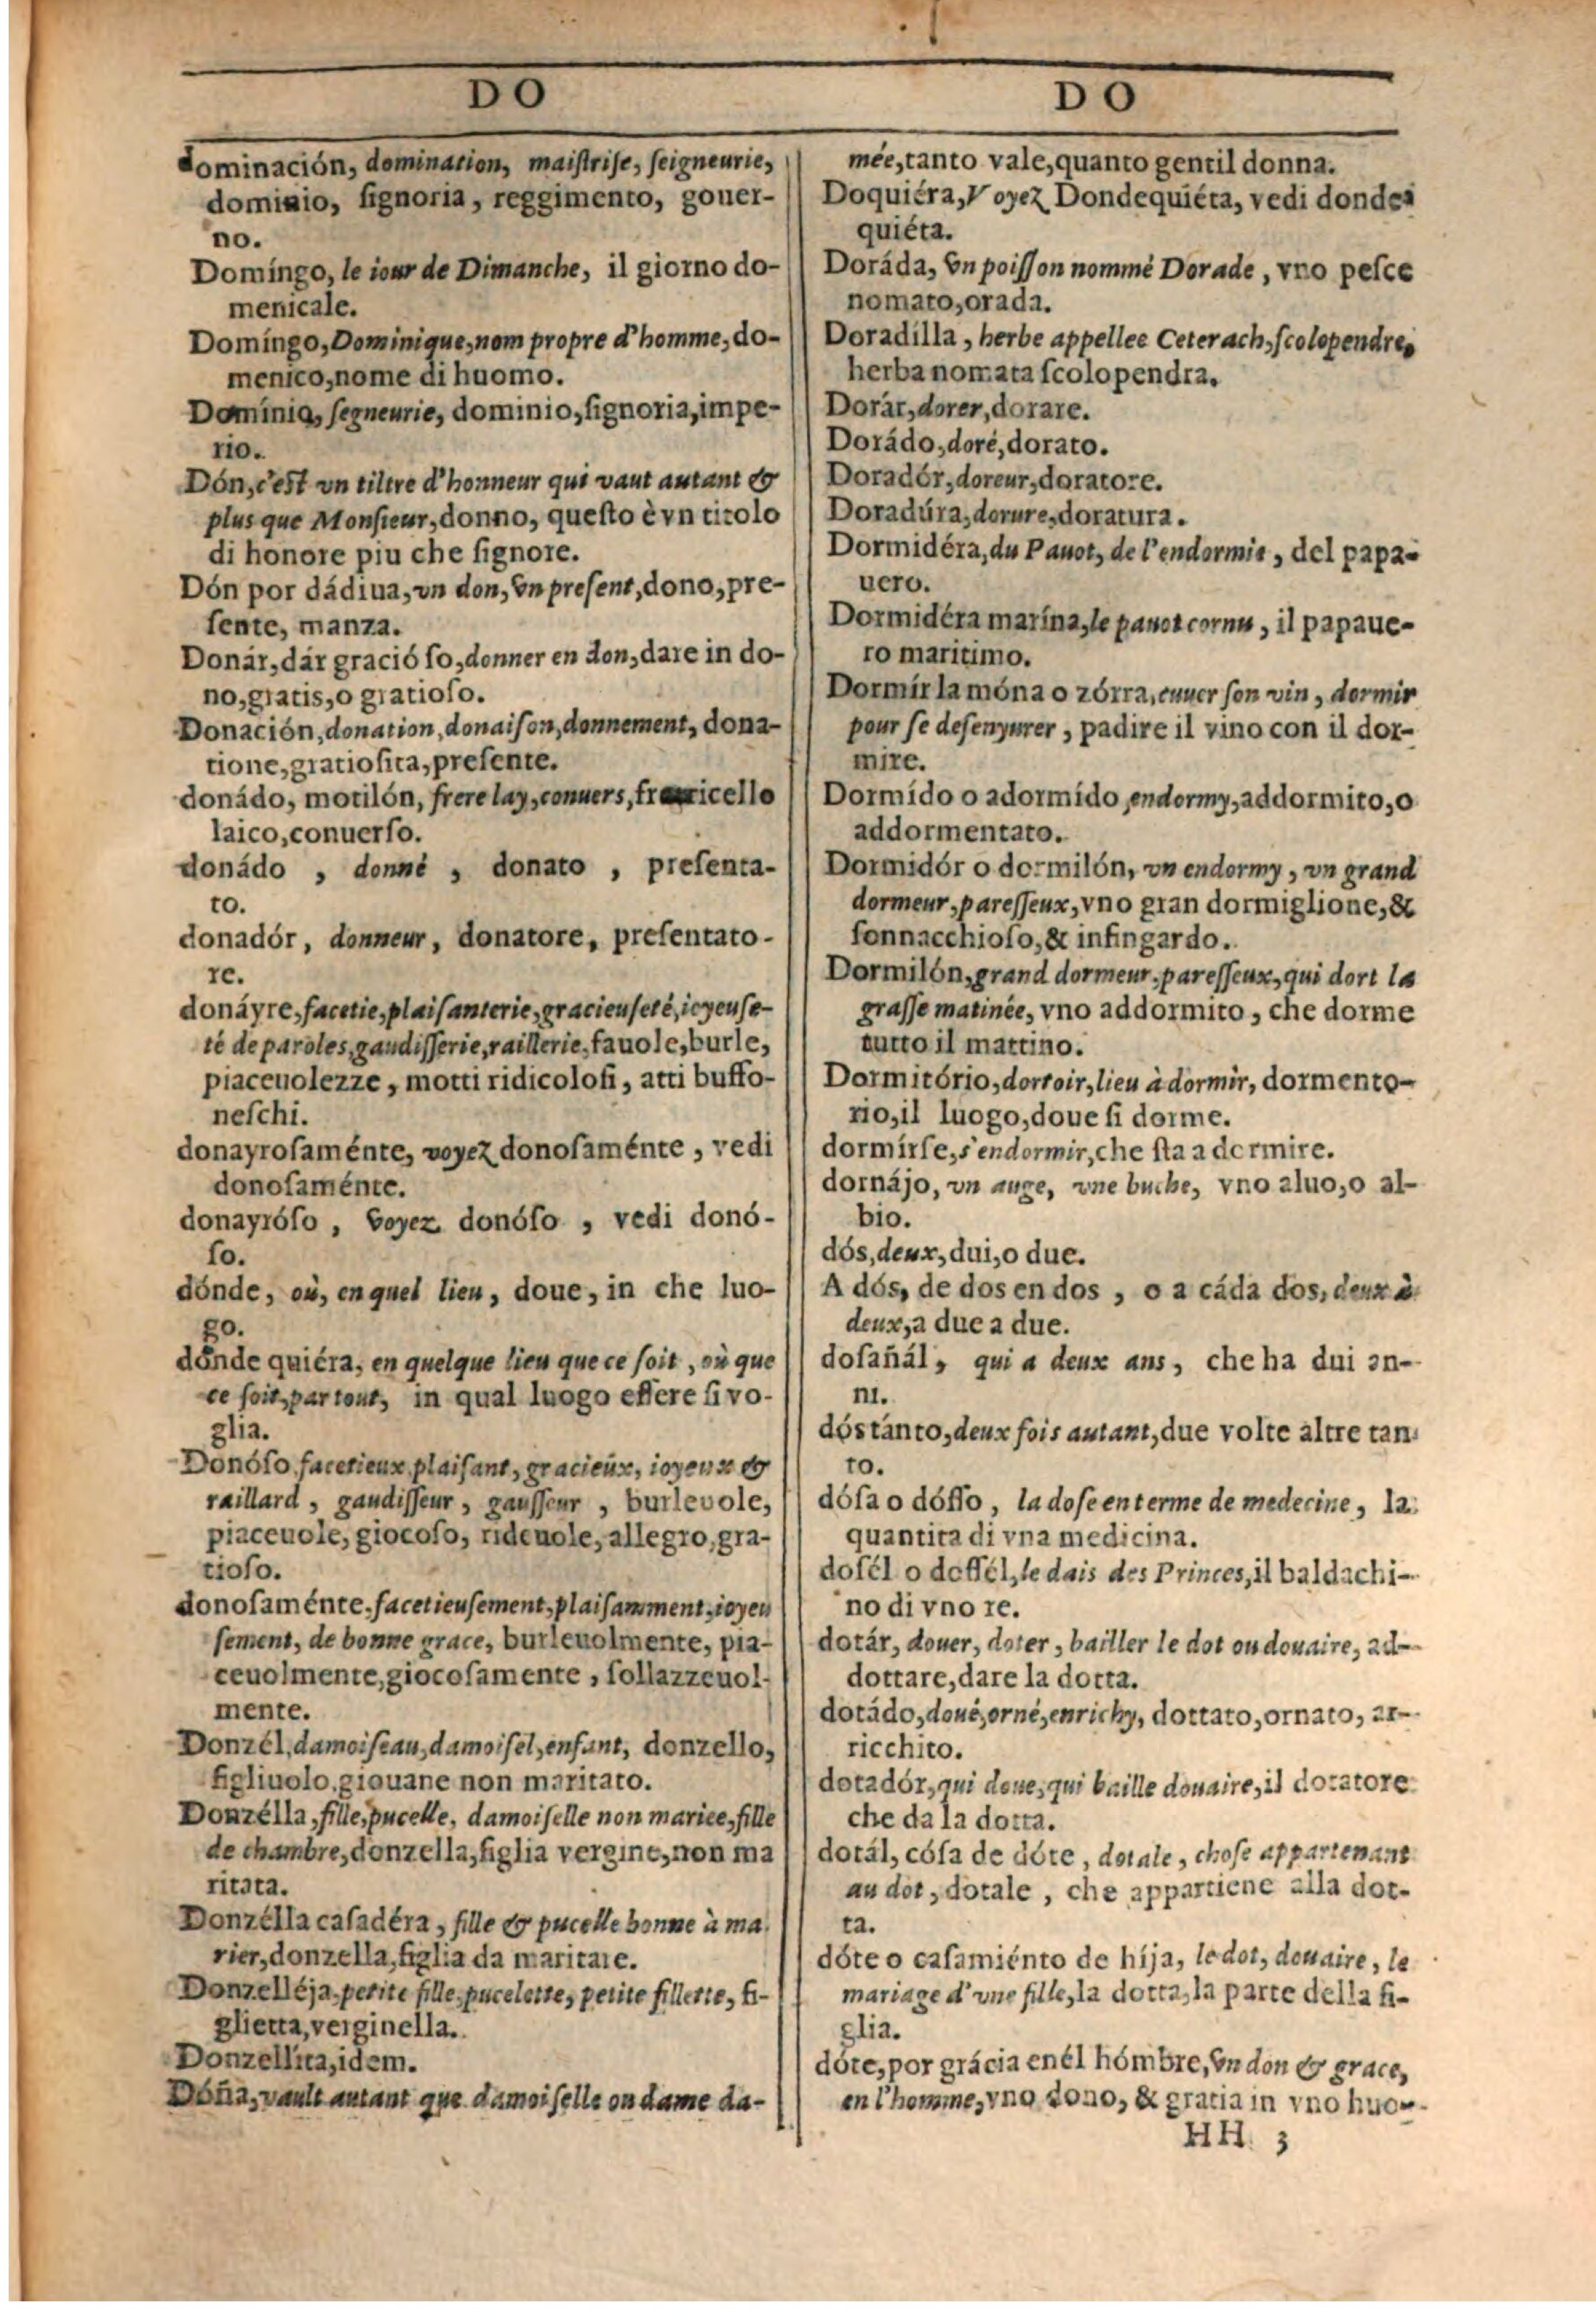 DO
dominación, domination, maiſtriſe, ſeigneurie,
dominio, ſignoria, reggimento, gouer-
no.
Domíngo, le iour de Dimanche, il giorno do-
menicale.
Domíngo, Dominique, nom propre d'homme, do-
menico, nome di huomo.
Domínio, ſegneurie, dominio, ſignoria, impe-
rio.
Dón, c'eſt vn tiltre d'honneur qui vaut autant &
plus que Monſieur, donno, queſto è vn titolo
di honore piu che ſignore.
Dón por dádiua, vn don, vn preſent, dono, pre-
ſente, manza.
Donár, dár gració ſo, donner en don, dare in do-
no, gratis, o gratioſo.
Donación, donation, donaiſon, donnement, dona-
tione, gratioſita, preſente.
donádo, motilón, frere lay, conuers, fratricello
laico, conuerſo.
donádo , donné , donato , preſenta-
to.
donadór, donneur, donatore, preſentato-
re.
donáyre, facetie, plaiſanterie, gracieuſeté, ioyeuſe-
té de paroles, gaudiſſerie, raillerie, fauole, burle,
piaceuolezze, motti ridicoloſi, atti buffo-
neſchi.
donayroſaménte, voyez donoſaménte, vedi
donoſaménte.
donayróſo , voyez donóſo , vedi donó-
ſo.
dónde, où, en quel lieu, doue, in che luo-
go.
dónde quiéra, en quelque lieu que ce ſoit, où que
ce ſoit, par tout, in qual luogo eſſere ſi vo-
glia.
Donóſo, facetieux, plaiſant, gracieúx, ioyeux &
raillard, gaudiſſeur, gauſſeur, burleuole,
piaceuole, giocoſo, rideuole, allegro, gra-
tioſo.
donoſaménte, facetieuſement, plaiſamment, ioyeu
ſement, de bonne grace, burleuolmente, pia-
ceuolmente, giocoſamente, ſollazzeuol-
mente.
Donzél, damoiſeau, damoiſel, enfant, donzello,
figliuolo, giouane non maritato.
Donzélla, fille, pucelle, damoiſelle non mariee, fille
de chambre, donzella, figlia vergine, non ma
ritata.
Donzélla caſadéra, fille & pucelle bonne à ma
rier, donzella, figlia da maritare.
Donzelléja, petite fille, pucelette, petite fillette, fi-
glietta, verginella.
Donzellíta, idem.
Dóña, vault autant que damoiſelle ou dame da-
DO
mée, tanto vale, quanto gentil donna.
Doquiéra, Voyez Dondequiéta, vedi donde
quiéta.
Doráda, vn poiſſon nommé Dorade, vno peſce
nomato, orada.
Doradílla, herbe appellee Ceterach, ſcolopendre,
herba nomata ſcolopendra.
Dorár, dorer, dorare.
Dorádo, doré, dorato.
Doradór, doreur, doratore.
Doradúra, dorure, doratura.
Dormidéra, du Pauot, de l'endormie, del papa-
uero.
Dormidéra marína, le pauot cornu, il papaue-
ro maritimo.
Dormír la móna o zórra, cuuer ſon vin, dormir
pour ſe deſenyurer, padire il vino con il dor-
mire.
Dormído o adormído, endormy, addormito, o
addormentato.
Dormidór o dormilón, vn endormy, vn grand
dormeur, pareſſeux, vno gran dormiglione, &
ſonnacchioſo, & infingardo.
Dormilón, grand dormeur, pareſſeux, qui dort la
graſſe matinée, vno addormito, che dorme
tutto il mattino.
Dormitório, dortoir, lieu à dormir, dormento-
rio, il luogo, doue ſi dorme.
dormírſe, s'endormir, che ſta a dormire.
dornájo, vn auge, vne buche, vno aluo, o al-
bio.
dós, deux, dui, o due.
A dós, de dos en dos , o a cáda dos, deux à
deux, a due a due.
doſañál, qui a deux ans, che ha dui an-
ni.
dóstánto, deux fois autant, due volte altre tan
to.
dóſa o dóſſo, la doſe en terme de medecine, la
quantita di vna medicina.
doſél o doſſél, le dais des Princes, il baldachi-
no di vno re.
dotár, douer, doter, bailler le dot ou douaire, ad-
dottare, dare la dotta.
dotádo, doué, orné, enrichy, dottato, ornato, ar-
ricchito.
dotadór, qui doue, qui baille douaire, il dotatore
che da la dotta.
dotál, cóſa de dóte, dotale, choſe appartenant
au dot, dotale, che appartiene alla dot-
ta.
dóte o caſamiénto de híja, le dot, douaire, le
mariage d'vne fille, la dotta, la parte della fi-
glia.
dóte, por grácia en él hómbre, vn don & grace,
en l'homme, vno dono, & gratia in vno huo-
HH 3